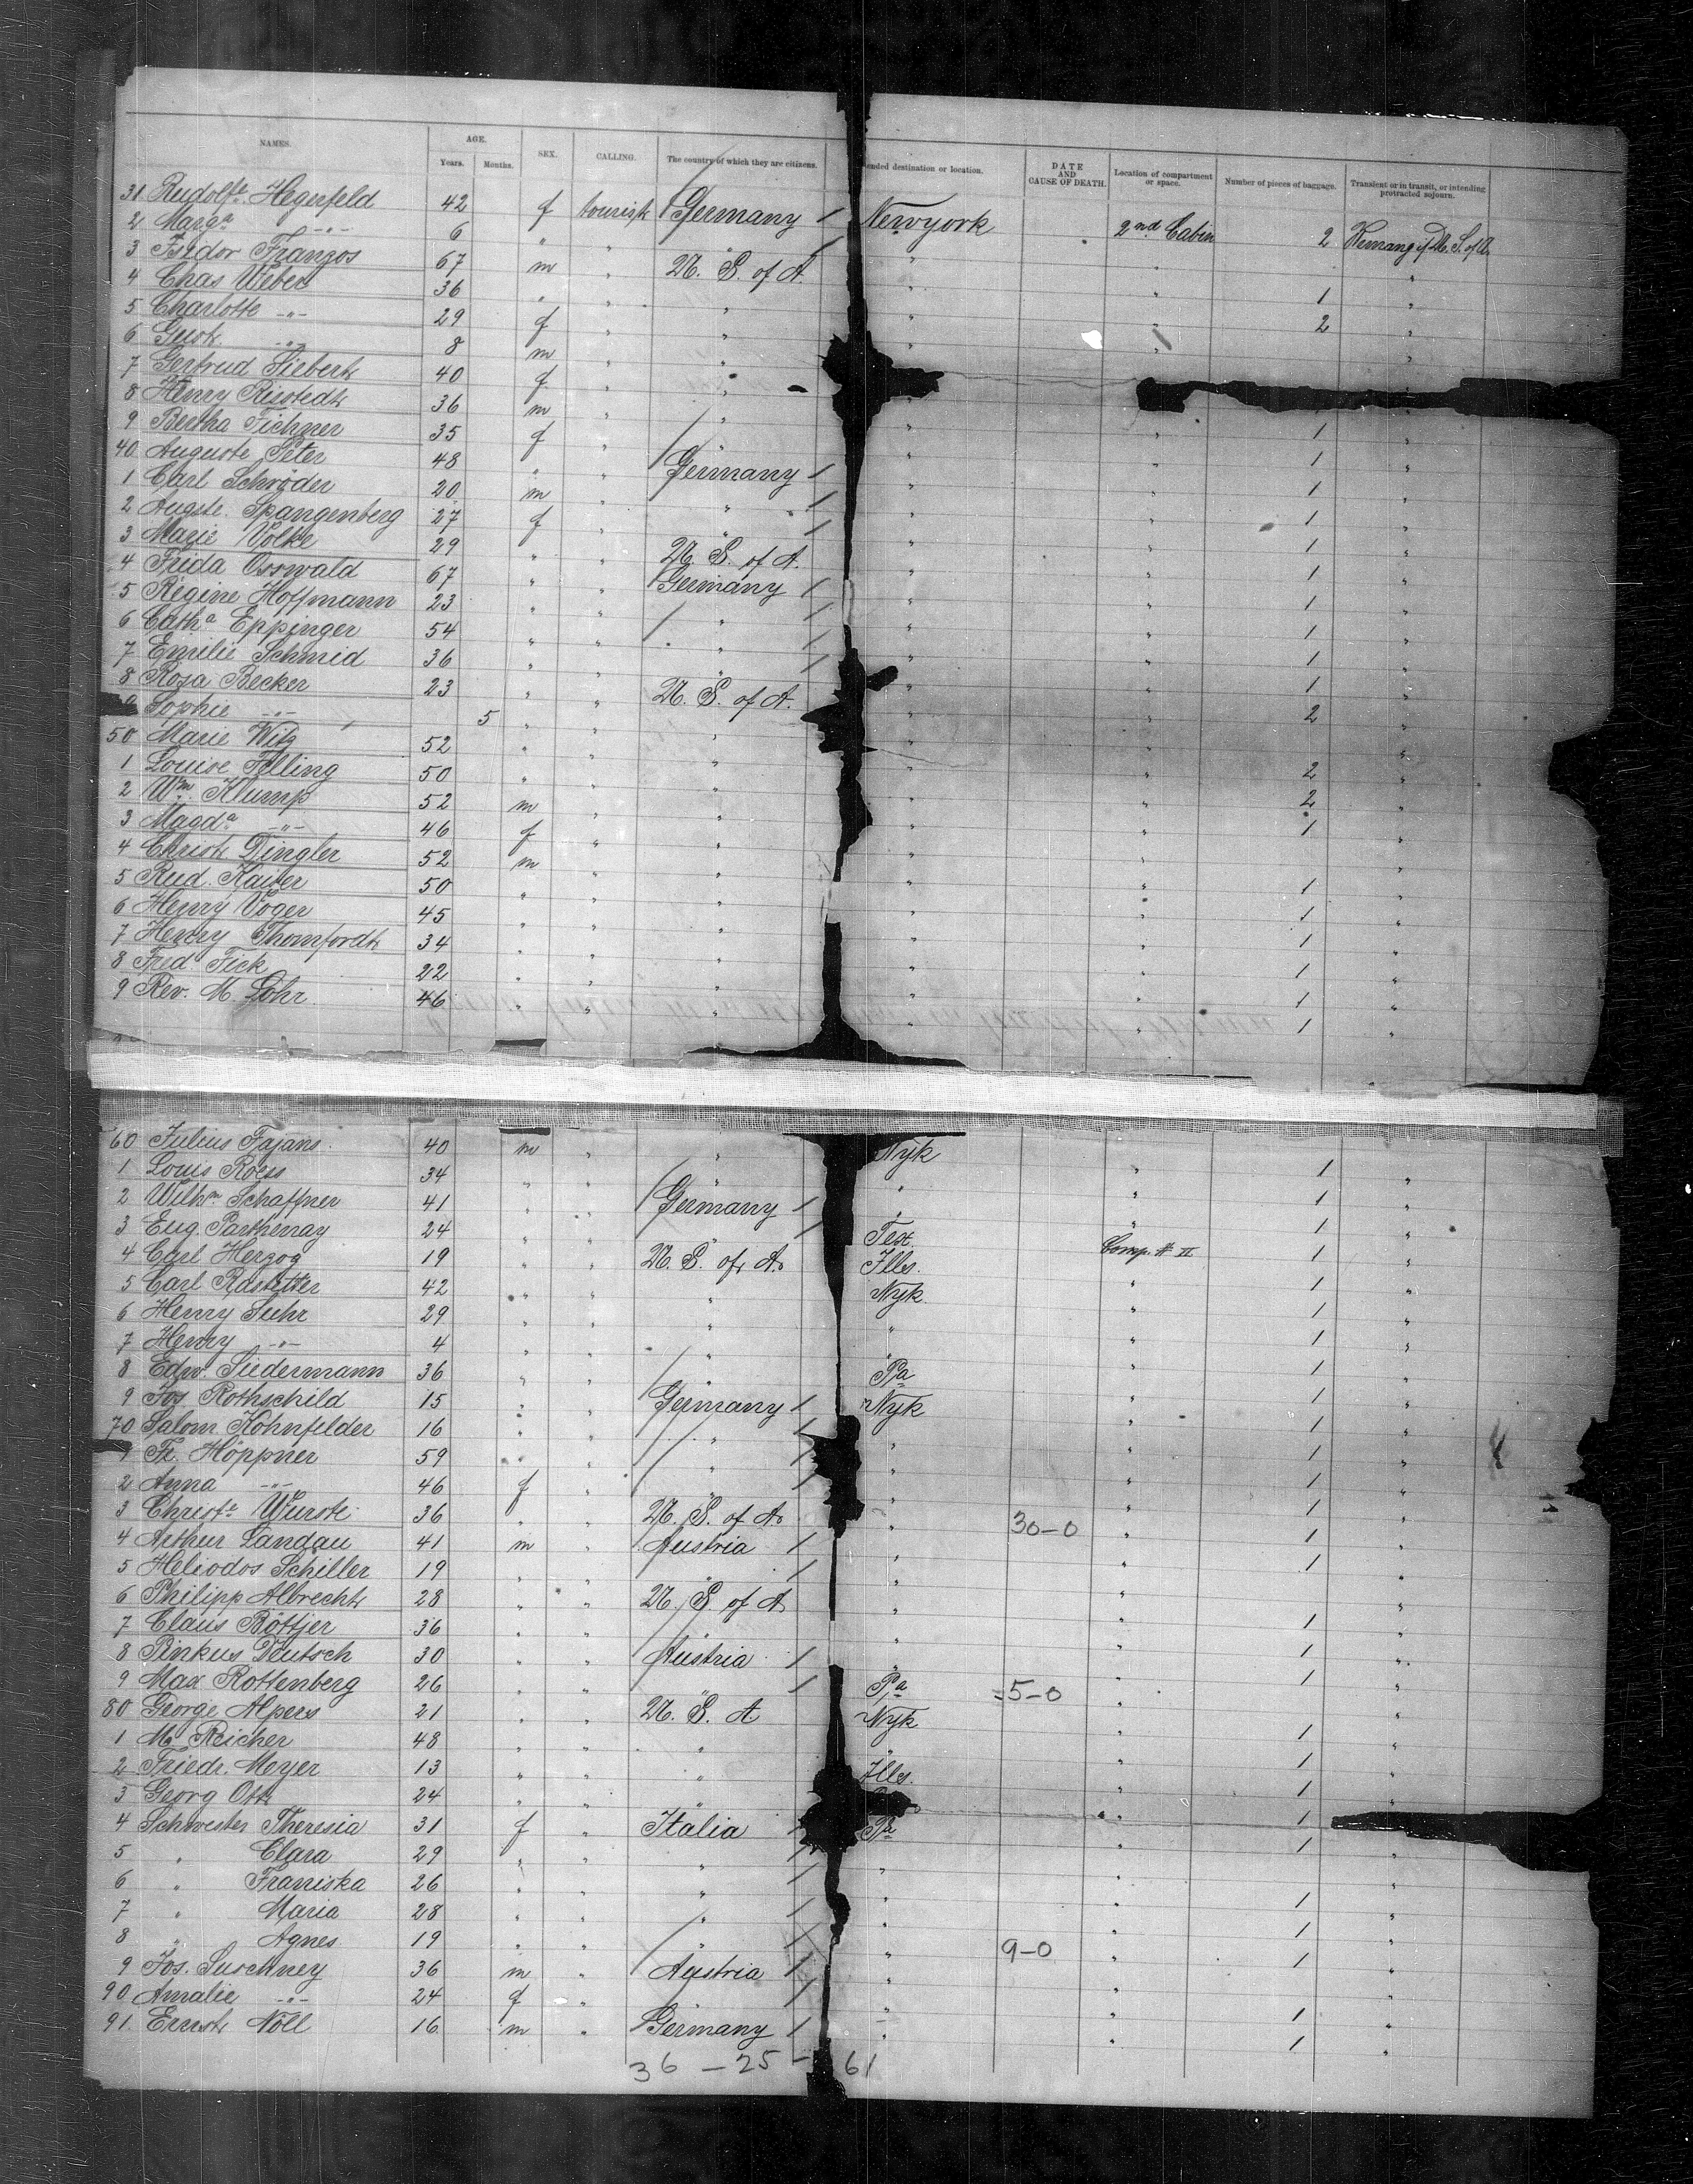 NAMES. AGE. Years. Months. SEX. CALLING. The country of which they are citizens. ended destination or location. DATE AND CAUSE OF DEATH. Location of compartment or space. Number of pieces of baggage. Transient or in transit, or intending protracted sojourn.
31 Rudolfe. Hegerfeld 42 f tourist Germany 1 Newyork 2nd Cabin 2
2 Marga -"- 6 " " " "
3 Isidor Franzos 67 m " U. S. of A. " " "
4 Chas Weber 36 " " " " " 1 "
5 Charlotte -"- 29 f " " " " 2 "
6 Gust. -"- 8 m " " " " "
7 Gertrud Siebert 40 f " " "
8 Henry Ristedt 36 m " " "
9 Bertha Fichner 35 f " " " " 1 "
40 Auguste Peter 48 " " Germany 1 " " 1 "
1 Carl Schröder 20 m " " 1 " " 1 "
2 Augste. Spangenberg 27 f " " 1 " " 1 "
3 Marie Völke 29 " " U. S. of A. " " 1 "
4 Frida Osswald 67 " " Germany 1 " " 1 "
5 Regine Hoffmann 23 " " " 1 " " 1 "
6 Catha Eppinger 54 " " " 1 " " 1 "
7 Emilie Schmid 36 " " " 1 " " 1 "
8 Rosa Becker 23 " " U. S. of A. " " 1 "
9 Sophie -"- 5 " " " " " 2 "
50 Marie Witz 52 " " " " " "
1 Louise Filling 50 " " " " " 2 "
2 Wm Klump 52 m " " " " 2 "
3 Magda -"- 46 f " " " " 1 "
4 Christ Dingler 52 m " " " " "
5 Rud. Kaiser 50 " " " " " 1 "
6 Henry Voger 45 " " " " " 1 "
7 Henry Thomfordt 34 " " " " " 1 "
8 Fred Fick 22 " " " " " 1 "
9 Rev. M. Lohr 46 " " " " " 1 "
60 Julius Fajans 40 m " " Nyk " 1 "
1 Louis Roess 34 " " " " " 1 "
2 Wilhm Schaffner 41 " " Germany 1 " " 1 "
3 Eug. Parthenay 24 " " " 1 Tex. Comp. # II 1 "
4 Carl Herzog 19 " " U. S. of A. Ills. " 1 "
5 Carl Rastetter 42 " " " Nyk. " 1 "
6 Henry Suhr 29 " " " " " 1 "
7 Henry -"- 4 " " " " " 1 "
8 Edw. Sudermann 36 " " " Pa " 1 "
9 Jos Rothschild 15 " " Germany 1 Nyk " 1 "
70 Salom. Kohnfelder 16 " " " 1 " " 1 "
1 Fr. Höppner 59 " " " 1 " " 1 "
2 Anna -"- 46 f " " 1 " " 1 "
3 Christe Wurst 36 " " U. S. of A. " 30-0 " 1 "
4 Arthur Landau 41 m " Austria 1 " " 1 "
5 Heliodos Schiller 19 " " " 1 " " "
6 Philipp Albrecht 28 " " U. S. of A. " " 1 "
7 Claus Böttjer 36 " " " " " "
8 Pinkus Deutsch 30 " " Austria 1 " " 1 "
9 Max Rottenberg 26 " " " 1 Pa 5-0 " "
80 George Alpers 21 " " U. S. A Nyk " 1 "
1 M. Reicher 48 " " " " " 1 "
2 Friedr. Meyer 13 " " " Ills. " 1 "
3 Georg Ott 24 " " " " 1
4 Schwester Theresia 31 f " Italia 1 Pa " 1 "
5 " Clara 29 " " " 1 " " "
6 " Franiska 26 " " " 1 " " 1 "
7 " Maria 28 " " " 1 " " 1 "
8 " Agnes 19 " " " 1 " 9-0 " 1 "
9 Jos. Suschney 36 m " Austria 1 " " "
90 Amalie -"- 24 f " " 1 " " 1 "
91. Ernst Noll 16 m " Germany 1 " " 1 "
36 - 25 - 61